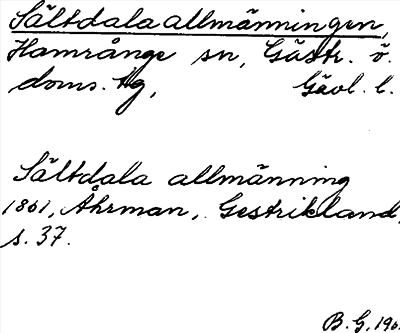 Sältdalaallmänningen,
Hamrånge sn, Gästr. ö.
doms. tg, Gävl. l.
Sältdala allmänning
1861, Åhrman, Gestrikland,
s. 37.
B. G. 190